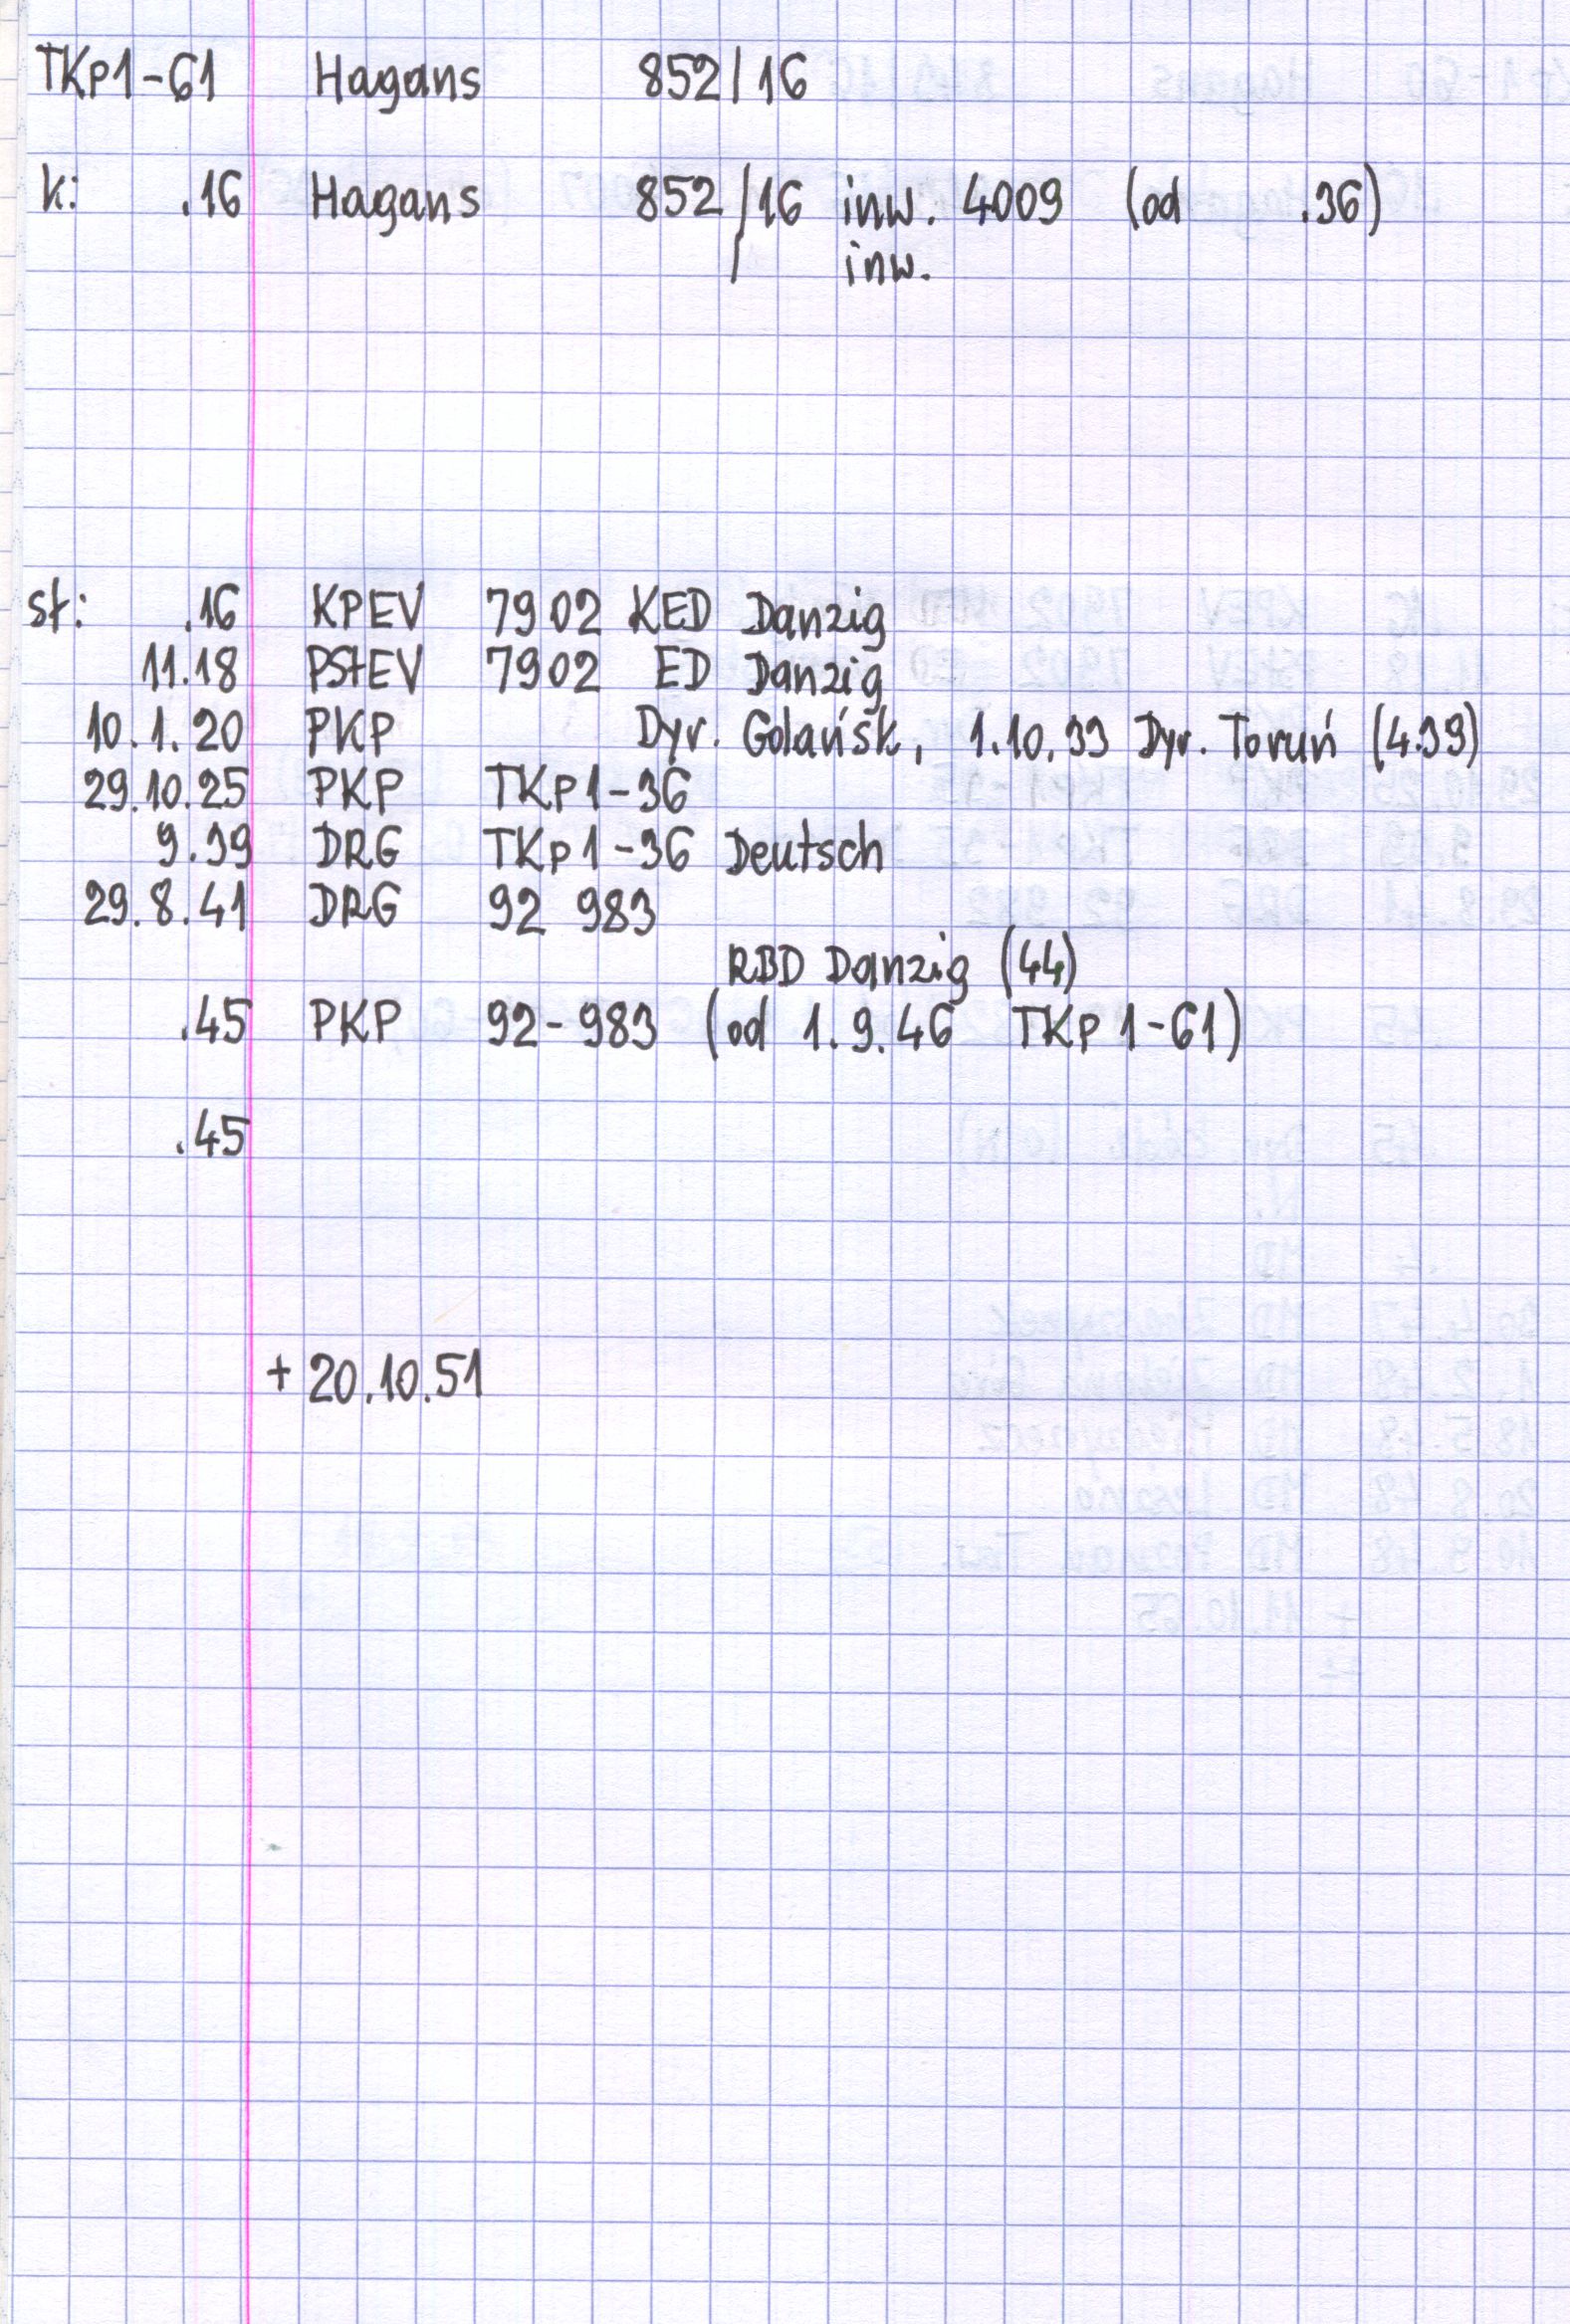 TKp1-61 Hagans 852/16
k: .16 Hagans 852/16 inw. 4009 (od .36)
inw.
st: .16 KPEV 7902 KED Danzig
11.18 PStEV 7902 ED Danzig
10.1.20 PKP Dyr. Gdańsk, 1.10.33 Dyr. Toruń (4.39)
29.10.25 PKP TKp1-36
9.39 DRG TKp1-36 Deutsch
29.8.41 DRG 92 983
RBD Danzig (44)
.45 PKP 92-983 (od 1.9.46 TKp1-61)
.45
+ 20.10.51